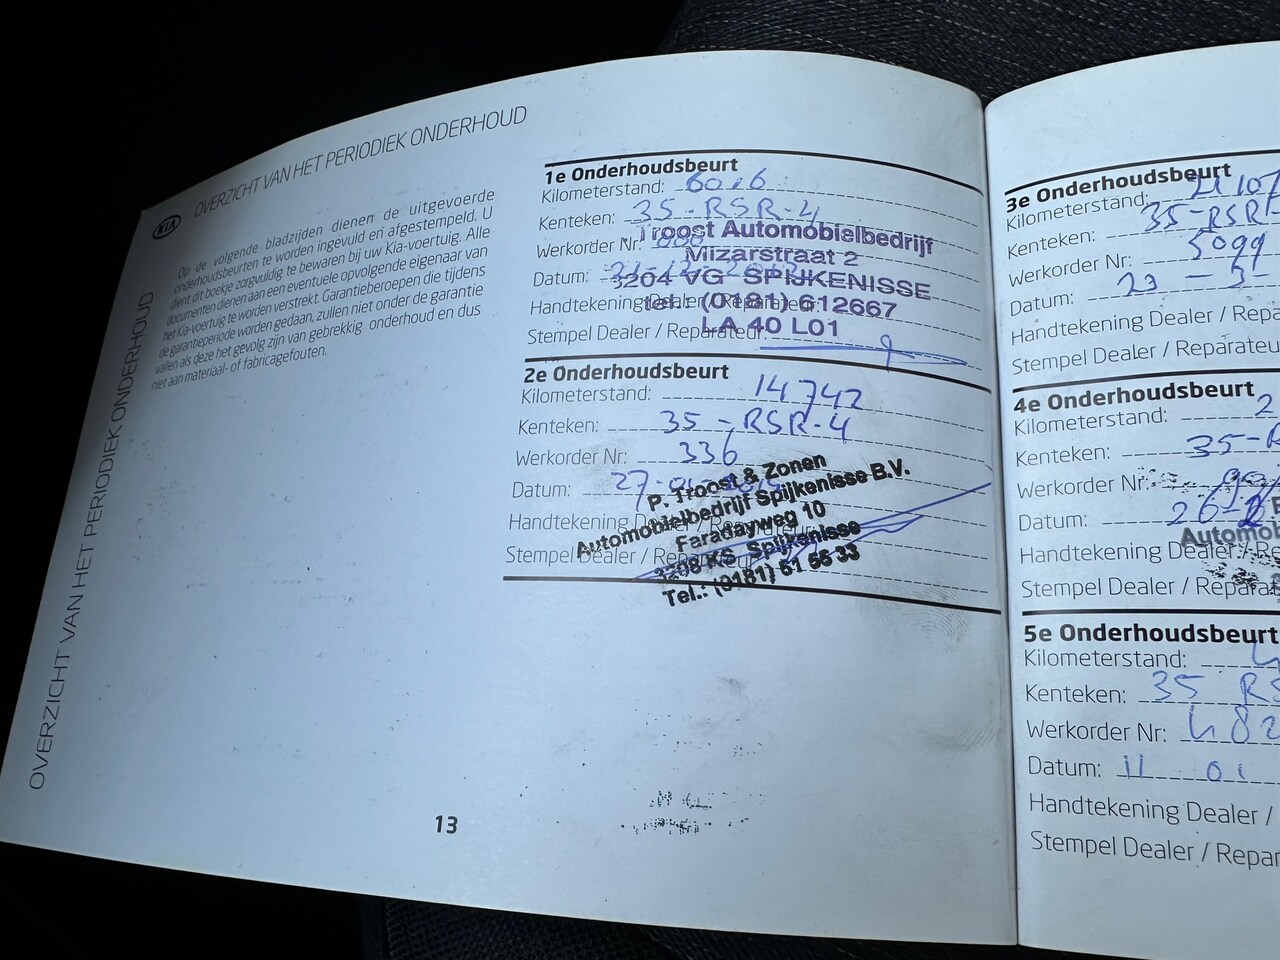 OVERZICHT VAN HET PERIODIEK ONDERHOUD
KIA
OVERZICHT VAN HET PERIODIEK ONDERHOUD
Op de volgende bladzijden dienen de uitgevoerde
onderhoudsbeurten te worden ingevuld en afgestempeld. U
dient dit boekje zorgvuldig te bewaren bij uw Kia-voertuig. Alle
documenten dienen aan een eventuele opvolgende eigenaar van
het Kia-voertuig te worden verstrekt. Garantieberoepen die tijdens
de garantieperiode worden gedaan, zullen niet onder de garantie
vallen als deze het gevolg zijn van gebrekkig onderhoud en dus
niet aan materiaal- of fabricagefouten.
1e Onderhoudsbeurt
Kilometerstand:
Kenteken: 35-RSR-4
Werkorder Nr:
Datum:
Handtekening Dealer / Reparateur:
Stempel Dealer / Reparateur:
Troost Automobielbedrijf
Mizarstraat 2
3204 VG SPIJKENISSE
tel. (0181) 612667
LA 40 L01
2e Onderhoudsbeurt
Kilometerstand: 14742
Kenteken: 35-RSR-4
Werkorder Nr: 336
Datum: 27-01-
Handtekening Dealer / Reparateur:
Stempel Dealer / Reparateur
P. Troost & Zonen
Automobielbedrijf Spijkenisse B.V.
Faradayweg 10
KS Spijkenisse
Tel.: (0181) 61 55 33
13
3e Onderhoudsbeurt
Kilometerstand: 21107
Kenteken: 35-RSR-
Werkorder Nr: 5099
Datum: 23-3-
Handtekening Dealer / Repa
Stempel Dealer / Reparateu
4e Onderhoudsbeurt
Kilometerstand: 2
Kenteken: 35-R
Werkorder Nr:
Datum: 26-
Handtekening Dealer / Re
Stempel Dealer / Reparat
Automob
5e Onderhoudsbeurt
Kilometerstand:
Kenteken: 35 RS
Werkorder Nr: 482
Datum: 11 01
Handtekening Dealer /
Stempel Dealer / Repar